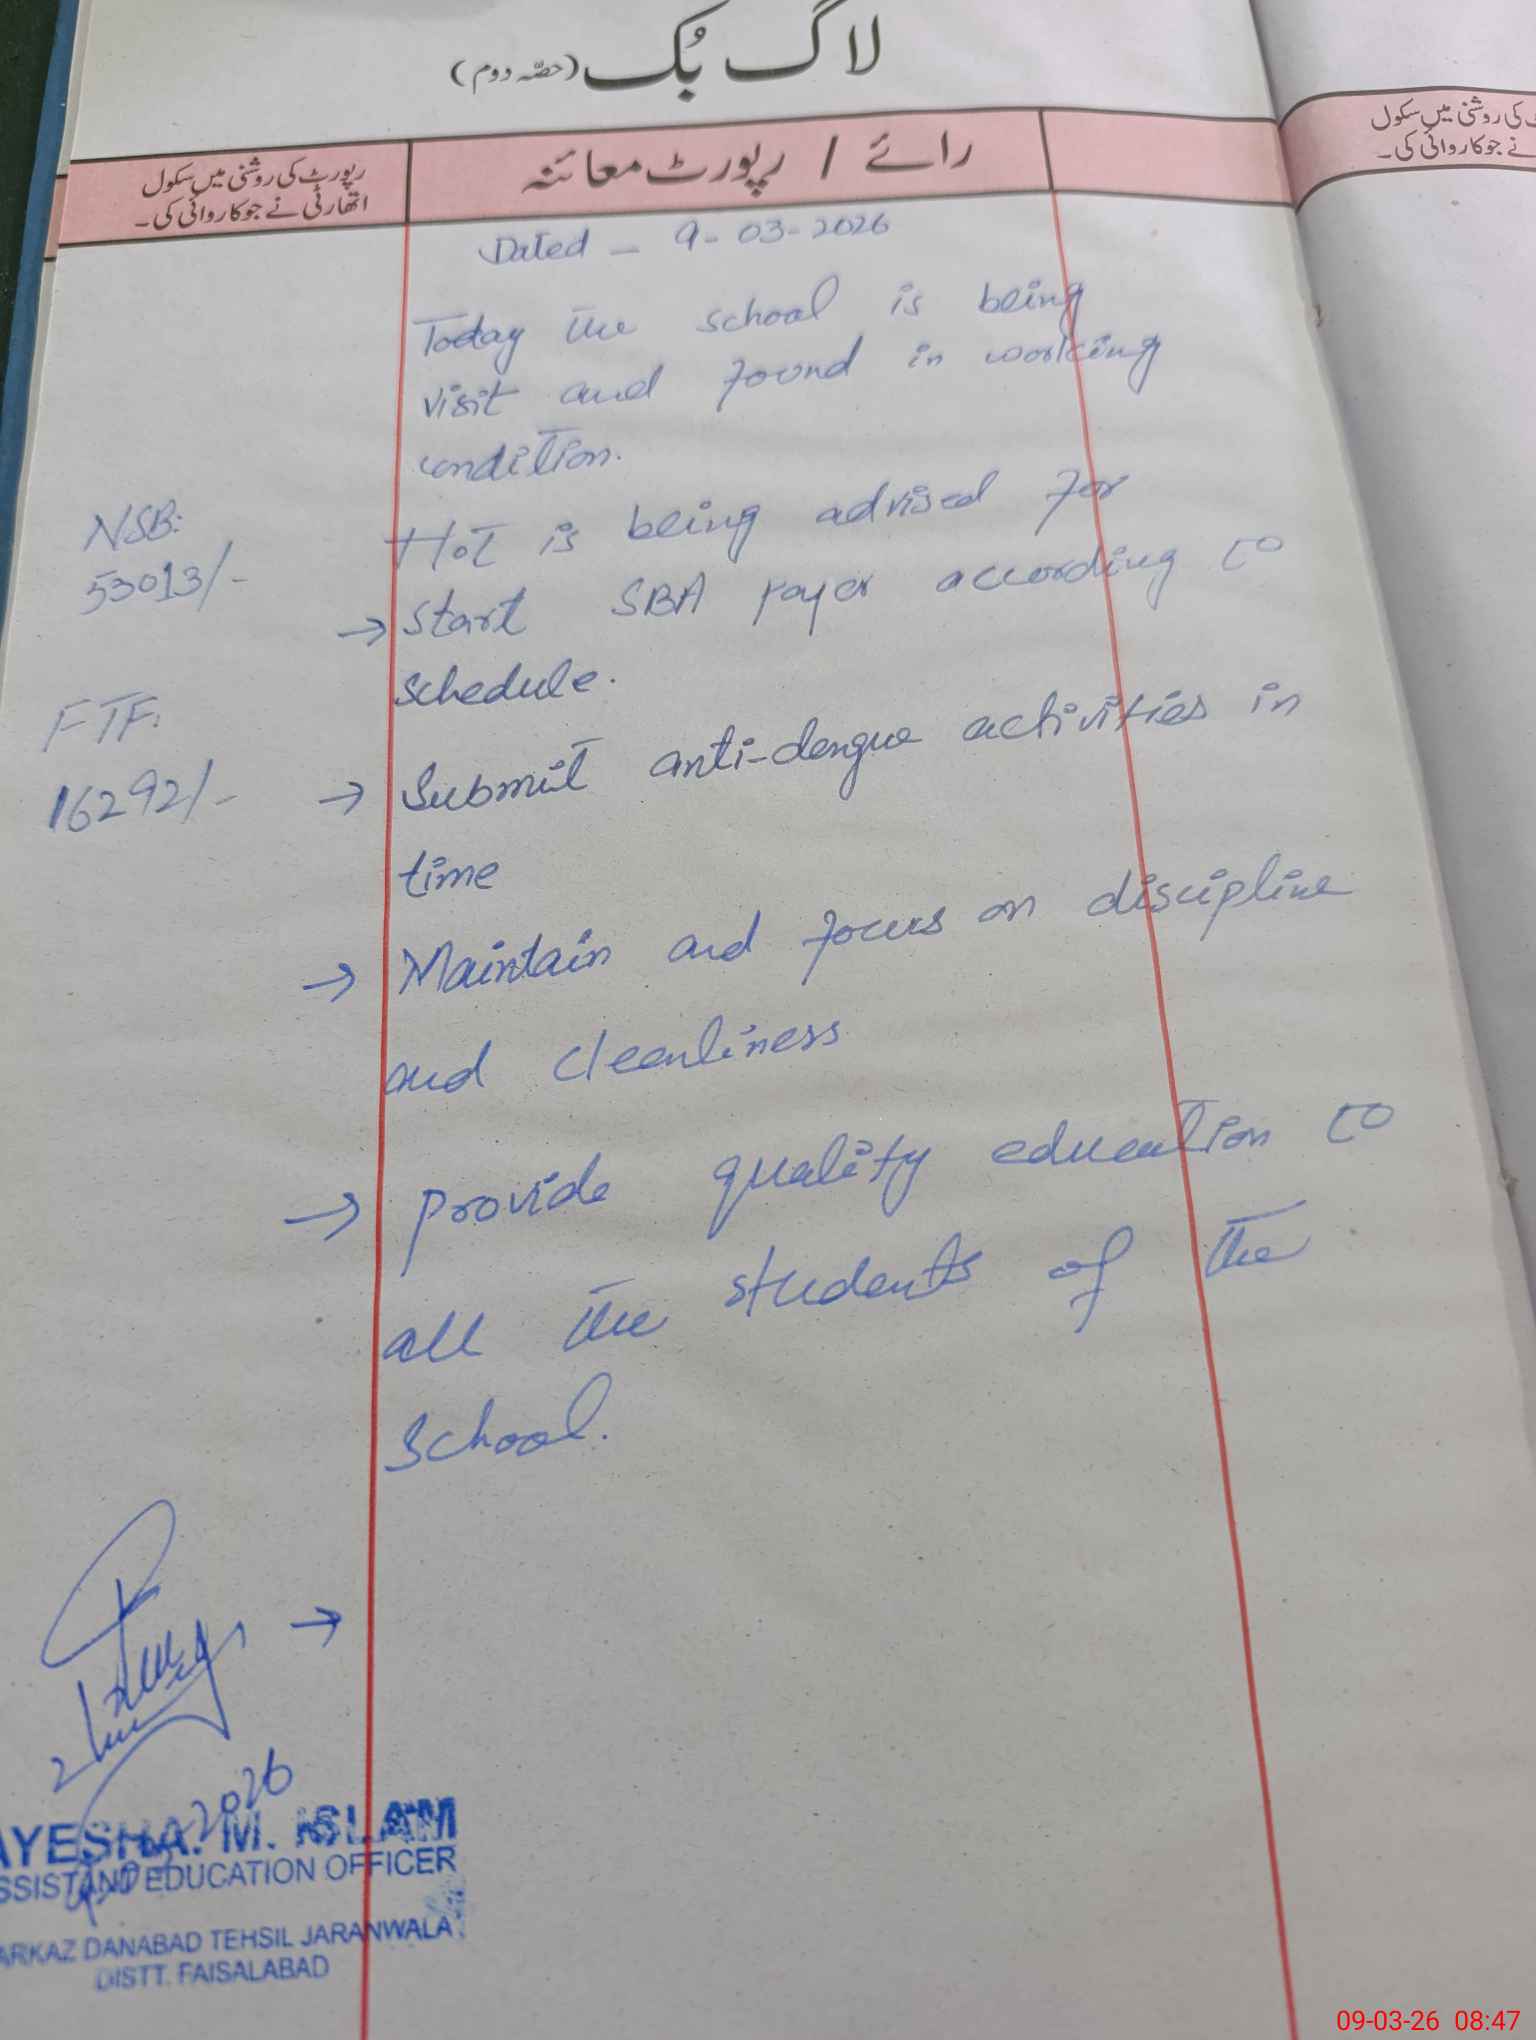 لاگ بُک (حصّہ دوم)
رائے / رپورٹ معائنہ
رپورٹ کی روشنی میں سکول
اتھارٹی نے جو کاروائی کی۔
کی روشنی میں سکول
نے جو کاروائی کی۔
Dated - 9-03-2026
Today the school is being
visit and found in working
condition.
NSB:
53013/-
HoT is being advised for
→ Start SBA payer according to
schedule.
FTF:
16292/-
→ Submit anti-dengue activities in
time
→ Maintain and focus on discipline
and cleanliness
→ provide quality education to
all the students of the
School.
→
2026
AYESHA. M. ISLAM
SSISTANT EDUCATION OFFICER
ARKAZ DANABAD TEHSIL JARANWALA
DISTT. FAISALABAD
09-03-26 08:47